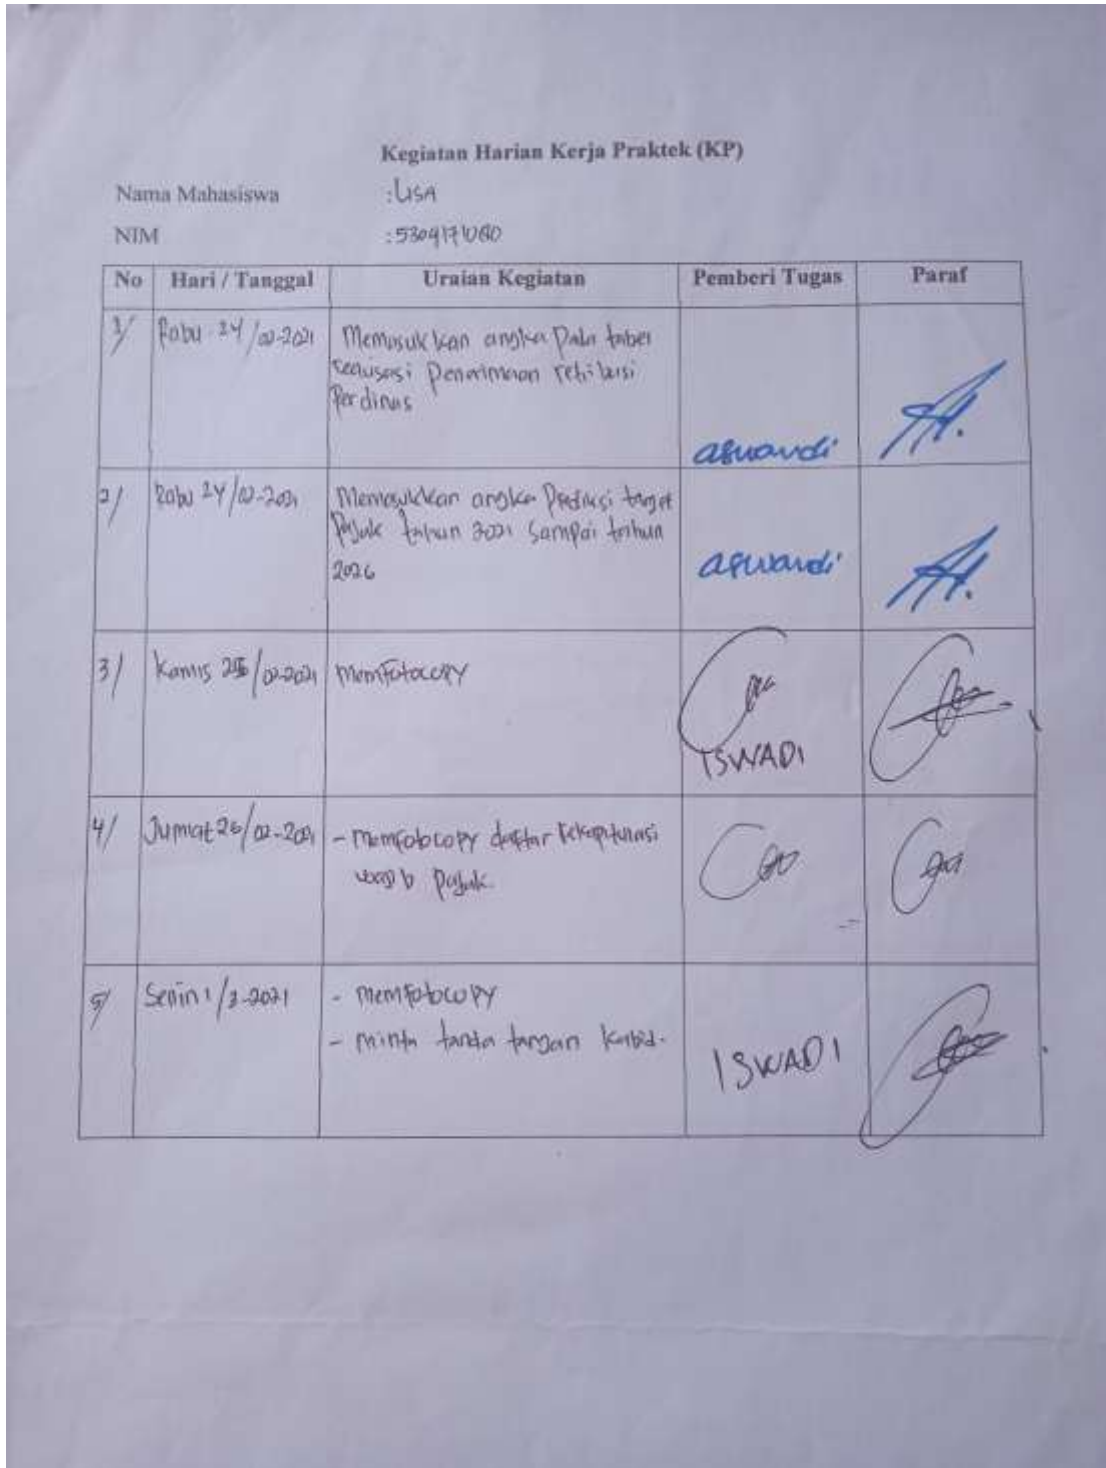 Kegiatan Harian Kerja Praktek (KP)
Nama Mahasiswa : LISA
NIM :
No Hari / Tanggal Uraian Kegiatan Pemberi Tugas Paraf
1/ Rabu 24/02-2021 Memasukkan angka Pada tabel
realisasi Penerimaan retribusi
Perdinas
aswandi
2/ Rabu 24/02-2021 Memasukkan angka Prediksi target
Pajak tahun 2021 sampai tahun
2026
aswandi
3/ Kamis 25/02-2021 memfotocopy
ISWADI
4/ Jumat 26/02-2021 - memfotocopy daftar rekapitulasi
wajib pajak.
5/ Senin 1/3-2021 - memfotocopy
- minta tanda tangan kabid.
ISWADI